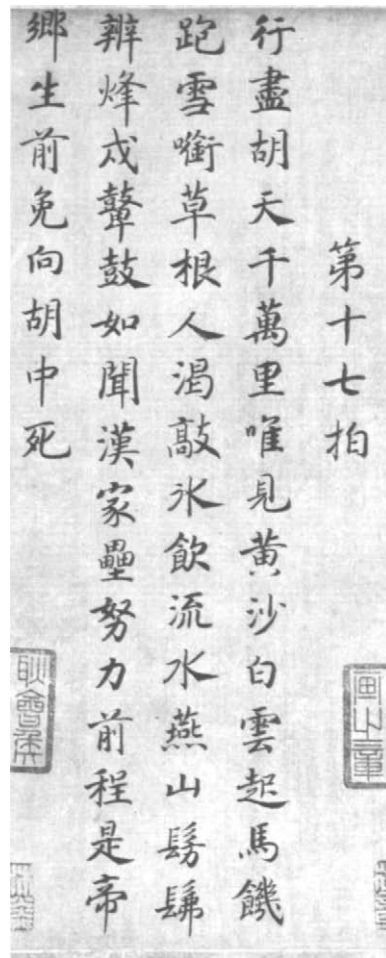 第十七拍
行盡胡天千萬里唯見黄沙白雲起馬饑
跑雪㘅草根人渴敲氷飲流水燕山髣髴
辨烽戍鼙鼓如聞漢家壘努力前程是帝
鄉生前免向胡中死
畫之章
耿會侯